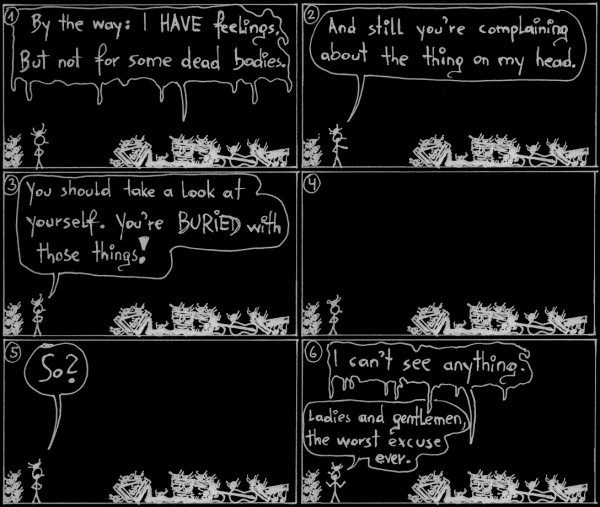 1
By the way: I HAVE feelings.
But not for some dead bodies.
2
And still you're complaining
about the thing on my head.
3
You should take a look at
yourself. You're BURIED with
those things!
4
5
So?
6
I can't see anything.
Ladies and gentlemen,
the worst excuse
ever.